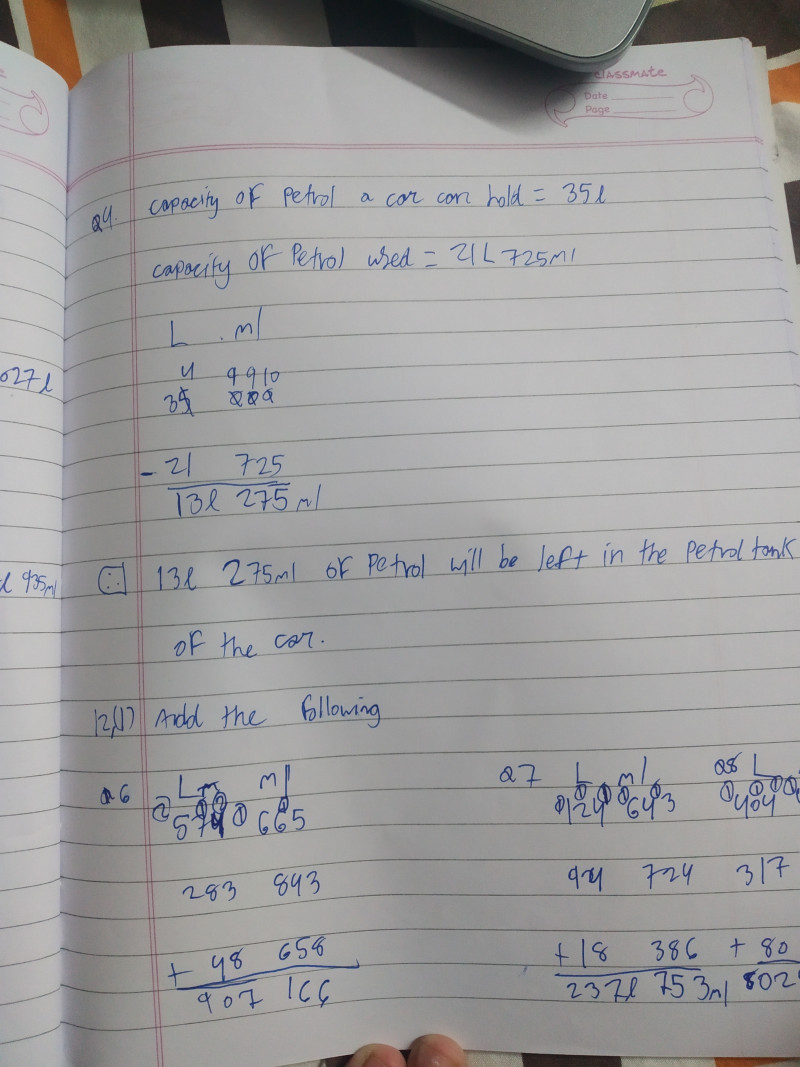 classmate
Date
Page
Q4. capacity of Petrol a car can hold = 35l
capacity of Petrol used = 21L 725ml
L . ml
4 9910
027l
35 000
- 21 725
13l 275ml
l 935ml
∴ 13l 275ml of Petrol will be left in the Petrol tank
of the car.
12,1) Add the following
Q6 L ml Q7 L ml Q8 L
665 124 643 404
283 843 94 724 317
+ 48 658 +18 386 + 80
907 166 237l 753ml 802